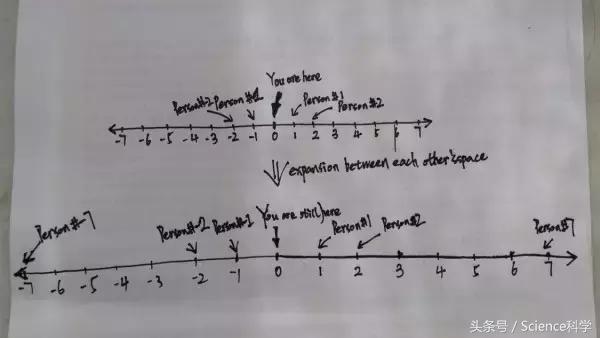 You are here
Person#-2 Person#-1 Person#1 Person#2
-7 -6 -5 -4 -3 -2 -1 0 1 2 3 4 5 6 7
expansion between each other's space
Person#-7 Person#-2 Person#-1 You are still here Person#1 Person#2 Person#7
-7 -6 -5 -4 -3 -2 -1 0 1 2 3 4 5 6 7
头条号 / Science科学